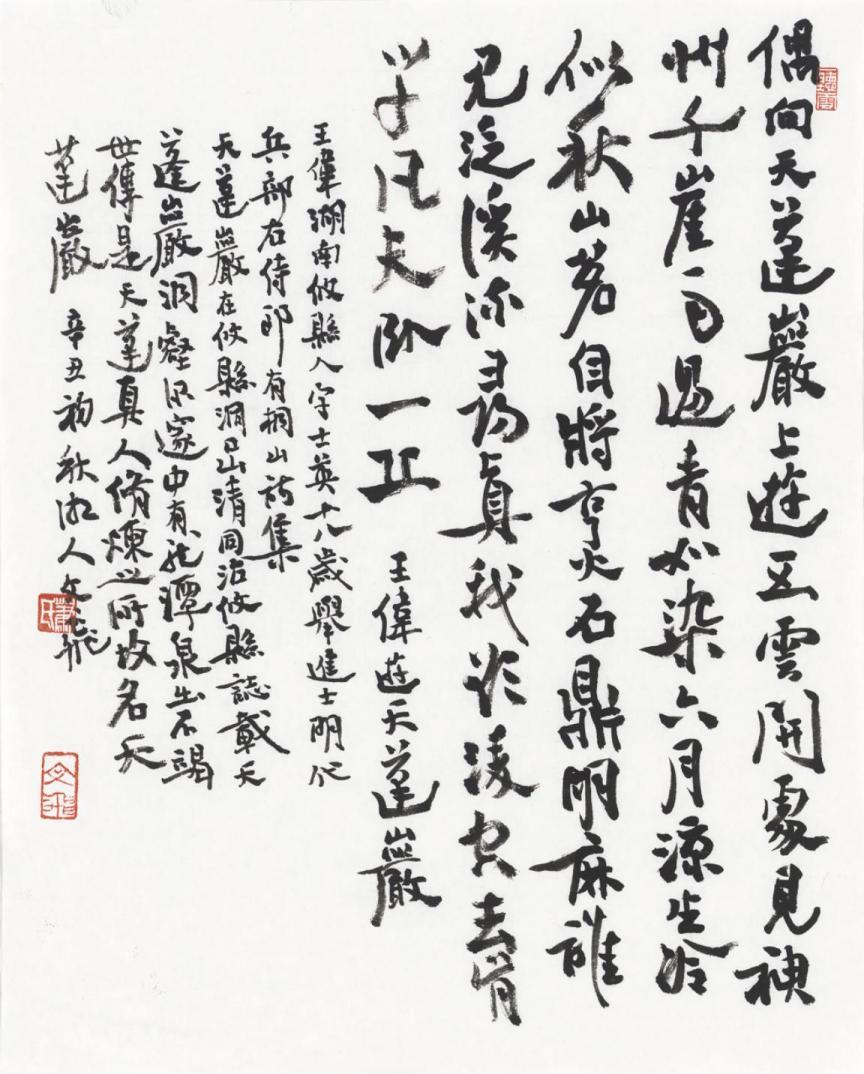 偶向天蓬巖上遊五雲開處見神
州千崖雨過青如染六月涼生冷
似秋山茗自將烹石鼎胡麻誰
見泛溪流尋真我欲凌空去肯
学凡夫卧一丘 王偉遊天蓬巖
王偉湖南攸縣人字士英十八歲舉進士明代
兵部右侍郎有桐山詩集
天蓬巖在攸縣洞口山清同治攸縣誌載天
蓬巖洞壑深邃中有龍潭泉出不竭
世傳是天蓬真人脩煉之所故名天
蓬巖 辛丑初秋湘人